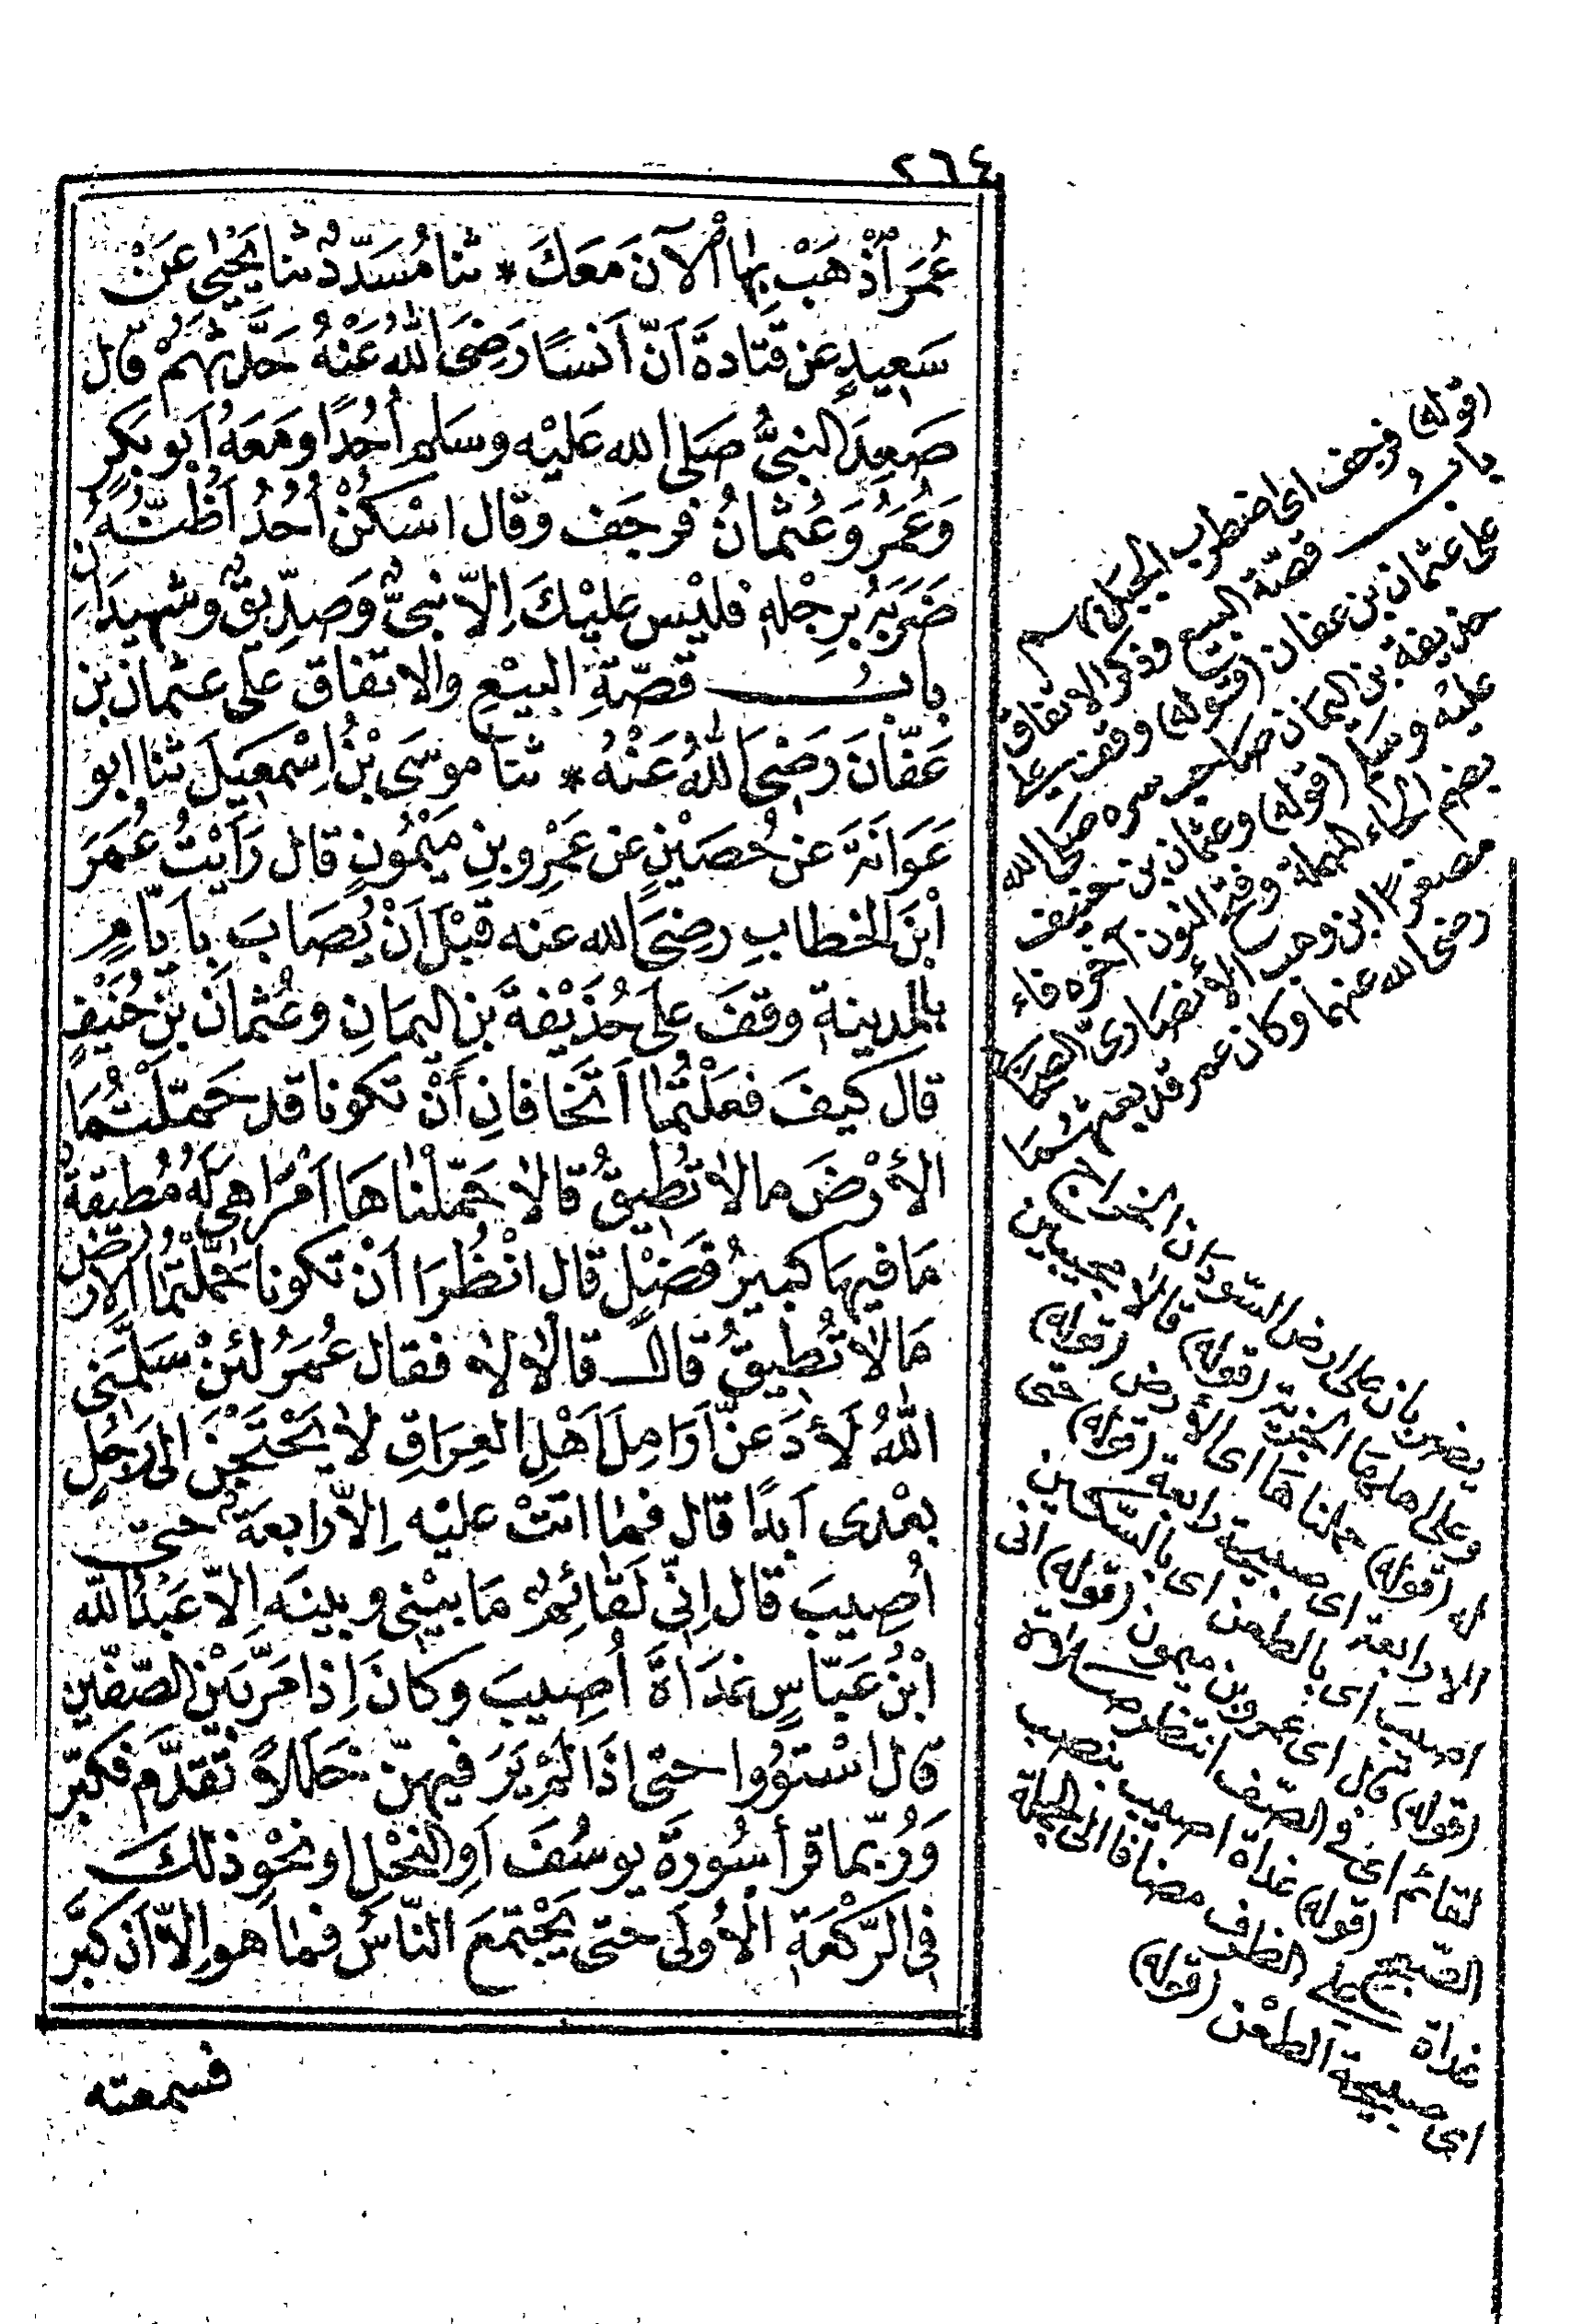 ٢٦٤
عُمَرَ اذْهَبْ بِهَا الْآنَ مَعَكَ * ثنا مُسَدَّدٌ ثنا يَحْيٰى عَنْ
سَعِيدٍ عن قتادةَ اَنَّ اَنَسًا رَضِىَ اللهُ عَنْهُ حَدَّثَهُمْ قال
صَعِدَ النبىُّ صَلى الله عَليْه وسَلم أُحُدًا ومَعَهُ اَبو بَكرٍ
وَعُمَرُ وَعُثمانُ فرجَف وقال اسْكنْ اُحُدُ اَظُنُّهُ
ضَرَبَهُ برِجْلهِ فليْس عليْكَ اِلاّ نبىٌّ وَصدِّيقٌ وشهيدَانِ
بابُ قصّةِ البيْعِ والاتفاق على عثمانَ بن
عَفّانَ رَضِىَ اللهُ عَنْهُ * ثنا موسَى بْنُ اِسْمٰعِيلَ ثنا ابو
عَوَانَةَ عن حُصَيْنٍ عن عَمْرِو بنِ مَيْمُونٍ قال رَاَيْتُ عُمَرَ
ابْنَ الخطابِ رضِىَ الله عنه قبْلَ اَنْ يُصَابَ بِاَيّامٍ
بالمدينة وقفَ على حُذَيْفةَ بْن اليمَانِ وعُثمانَ بْن حُنَيْفٍ
قال كيفَ فعَلْتُما اَتَخافانِ أَنْ تكونا قد حَمّلْتُمَا
الأَرْضَ مالا تُطِيقُ قالا حَمّلْناهَا اَمْرًا هىَ لَهُ مُطيقةٌ
مَا فيهَا كبيرُ فَضْلٍ قال انْظُرَا اَنْ تكونا حَمَّلْتُما الارْضَ
مَالا تُطِيقُ قال قالا لا فقال عُمَرُ لئنْ سَلّمَنى
اللهُ لَأَدَعَنّ اَرَامِلَ اَهْلِ العِرَاقِ لا يَحْتَجْنَ الى رَجُلٍ
بعْدى اَبدًا قال فما اتتْ عليْه اِلاّ رابعةٌ حتىّ
اُصِيبَ قال اِنّى لَقائِمٌ مَا بيْنى وبينَه اِلاّ عَبْدُ الله
ابْنُ عَبّاسٍ غدَاةَ اُصِيبَ وكانَ اِذا مَرّ بَيْنَ الصّفّين
قال اسْتوُوا حتى اذَا لَمْ يَرَ فيهنّ خلَلاً تقدَّم فكبّر
وَرُبّما قرأ سُورةَ يوسُفَ اَوِ النحْل او نحْو ذلكَ
فى الرّكْعَة الْاُولَى حتى يَجْتَمعَ النّاسُ فما هو اِلاّ اَن كبَّر
فسمعته
(قوله) فرجف اى اضطرب الجبل بهم
بابُ قصّة البيع وذكر الاتفاق
على عثمان بن عفان (قوله) وقف على
حذيفة بن اليمان صاحب سره صلى الله
عليه وسلم (قوله) وعثمان بن حنيف
بضم الحاء المهملة وفتح النون آخره فاء
مصغرا ابن وهب الأنصارى الصحابى
رضى الله عنهما وكان عمر قد بعثهما
يضربان على ارض السّواد الخراج
وعلى اهلها الجزية (قوله) قالا مجيبين
له (قوله) حملناها اى الأرض (قوله)
الا رابعة اى صبيحة رابعة (قوله) حتى
اصيب اى بالطعن اى بالسّكين
(قوله) قال اى عمرو بن ميمون (قوله) انى
لقائم اى فى الصّف انتظر صلاة
الصّبح (قوله) غداة اصيب بنصب
غداة على الظرف مضافا الى الجملة
اى صبيحة الطعْن (قوله)